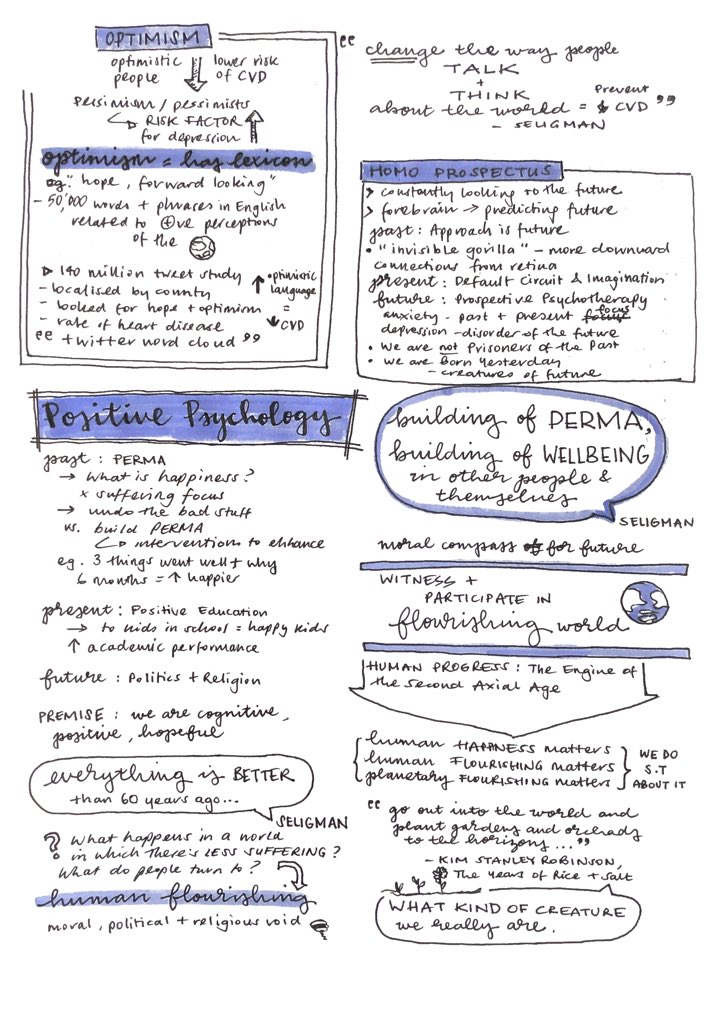 OPTIMISM
optimistic people
lower risk of CVD
pessimism / pessimists
↳ RISK FACTOR
for depression
optimism = has lexicon
eg. "hope, forward looking"
- 50'000 words + phrases in English
related to +ve perceptions
of the
▷ 140 million tweet study
- localised by county
- looked for hope + optimism
- rate of heart disease
"twitter word cloud"
↑ optimistic
language
=
↓ CVD
"change the way people
TALK
+
THINK
about the world = Prevent CVD"
- SELIGMAN
HOMO PROSPECTUS
> constantly looking to the future
> forebrain → predicting future
past: Approach is future
• "invisible gorilla" - more downward
connections from retina
present: Default Circuit & Imagination
future: Prospective Psychotherapy
anxiety - past + present focus
depression - disorder of the future
• We are not Prisoners of the Past
• We are Born Yesterday
- creatures of future
Positive Psychology
past: PERMA
→ What is happiness?
x suffering focus
→ undo the bad stuff
vs. build PERMA
↳ interventions to enhance
eg. 3 things went well + why
6 months = ↑ happier
present: Positive Education
→ to kids in school = happy kids
↑ academic performance
future: Politics + Religion
PREMISE: we are cognitive,
positive, hopeful
everything is BETTER
than 60 years ago...
SELIGMAN
? What happens in a world
in which there's LESS SUFFERING?
What do people turn to?
human flourishing
moral, political + religious void
building of PERMA,
building of WELLBEING
in other people &
themselves
SELIGMAN
moral compass for future
WITNESS +
PARTICIPATE IN
flourishing world
HUMAN PROGRESS: The Engine of
the Second Axial Age
human HAPPINESS matters
human FLOURISHING matters
planetary FLOURISHING matters
WE DO
S.T
ABOUT IT
"go out into the world and
plant gardens and orchards
to the horizons..."
- KIM STANLEY ROBINSON,
The Years of Rice + Salt
WHAT KIND OF CREATURE
we really are.